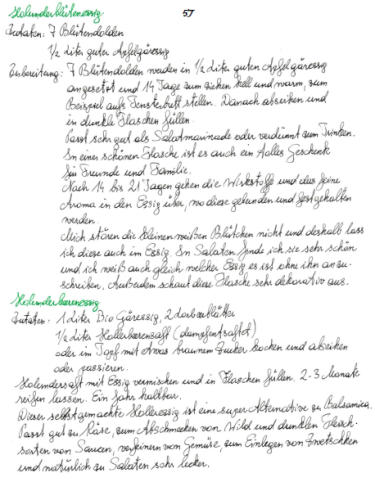 Holunderblütenessig 57
Zutaten: 7 Blütendolden
1/2 Liter guten Apfelgäressig
Zubereitung: 7 Blütendolden werden in 1/2 Liter guten Apfelgäressig
angesetzt und 14 Tage zum ziehen hell und warm, zum
Beispiel aufs Fensterbrett stellen. Danach abseihen und
in dunkle Flaschen füllen
Passt sehr gut als Salatmarinade oder verdünnt zum Trinken.
In einer schönen Flasche ist es auch ein tolles Geschenk
für Freunde und Familie.
Nach 14 bis 21 Tagen gehen die Wirkstoffe und das feine
Aroma in den Essig über, wo diese gebunden und festgehalten
werden.
Mich stören die kleinen weißen Blütchen nicht und deshalb lass
ich diese auch im Essig. In Salaten finde ich sie sehr schön
und ich weiß auch gleich welcher Essig es ist ohne ihn anzu-
schreiben. Außerdem schaut diese Flasche sehr dekorativ aus.
Holunderbeerenessig
Zutaten: 1 Liter Bio Gäressig, 2 Lorbeerblätter
1/2 Liter Hollerbeerensaft (dampfentsaftet)
oder im Topf mit etwas braunem Zucker kochen und abseihen
oder passieren.
Holundersaft mit Essig vermischen und in Flaschen füllen. 2-3 Monate
reifen lassen. Ein Jahr haltbar.
Dieser selbstgemachte Holleressig ist eine super Alternative zu Balsamico.
Passt gut zu Käse, zum Abschmecken von Wild und dunklen Fleisch-
sorten von Saucen, verfeinern von Gemüse, zum Einlegen von Zwetschken
und natürlich zu Salaten sehr lecker.